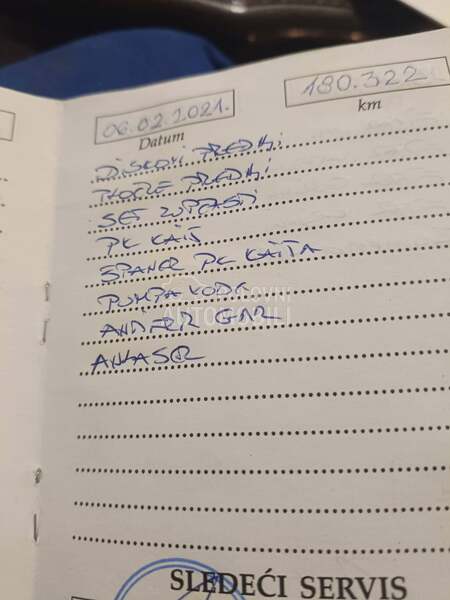 06.02.2021. 180.322
Datum km
DISKOVI PREDNJI
PLOČE PREDNJI
SET ZUPČASTI
PK KAIŠ
ŠPANER PK KAIŠA
PUMPA VODE
POLOVNI
AUTOMOBILI
ANTIFR. G12
ANLASER
SLEDEĆI SERVIS